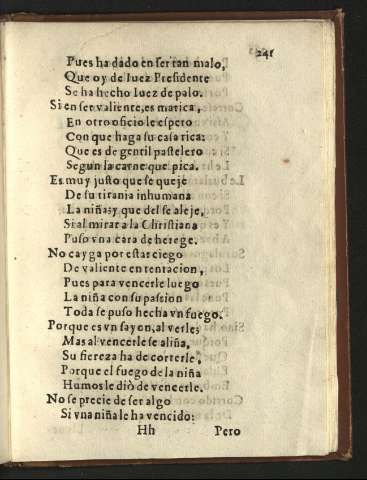 241
Pues ha dado en ser tan malo,
Que oy de Iuez Presidente
Se ha hecho Iuez de palo.
Si en ser valiente, es matica,
En otro oficio le espero
Con que haga su casa rica:
Que es de gentil pastelero
Segun la carne que pica.
Es muy justo que se queje
De su tirania inhumana
La niña; y que del se aleje,
Si al mirar a la Christiana
Puso vna cara de herege.
No cayga por estar ciego
De valiente en tentacion,
Pues para vencerle luego
La niña con su passion
Toda se puso hecha vn fuego.
Porque es vn sayon, al verle;
Mas al vencerle se aliña,
Su fiereza ha de correrle,
Porque el fuego de la niña
Humos le diò de vencerle.
No se precie de ser algo
Si vna niña le ha vencido:
Hh Pero